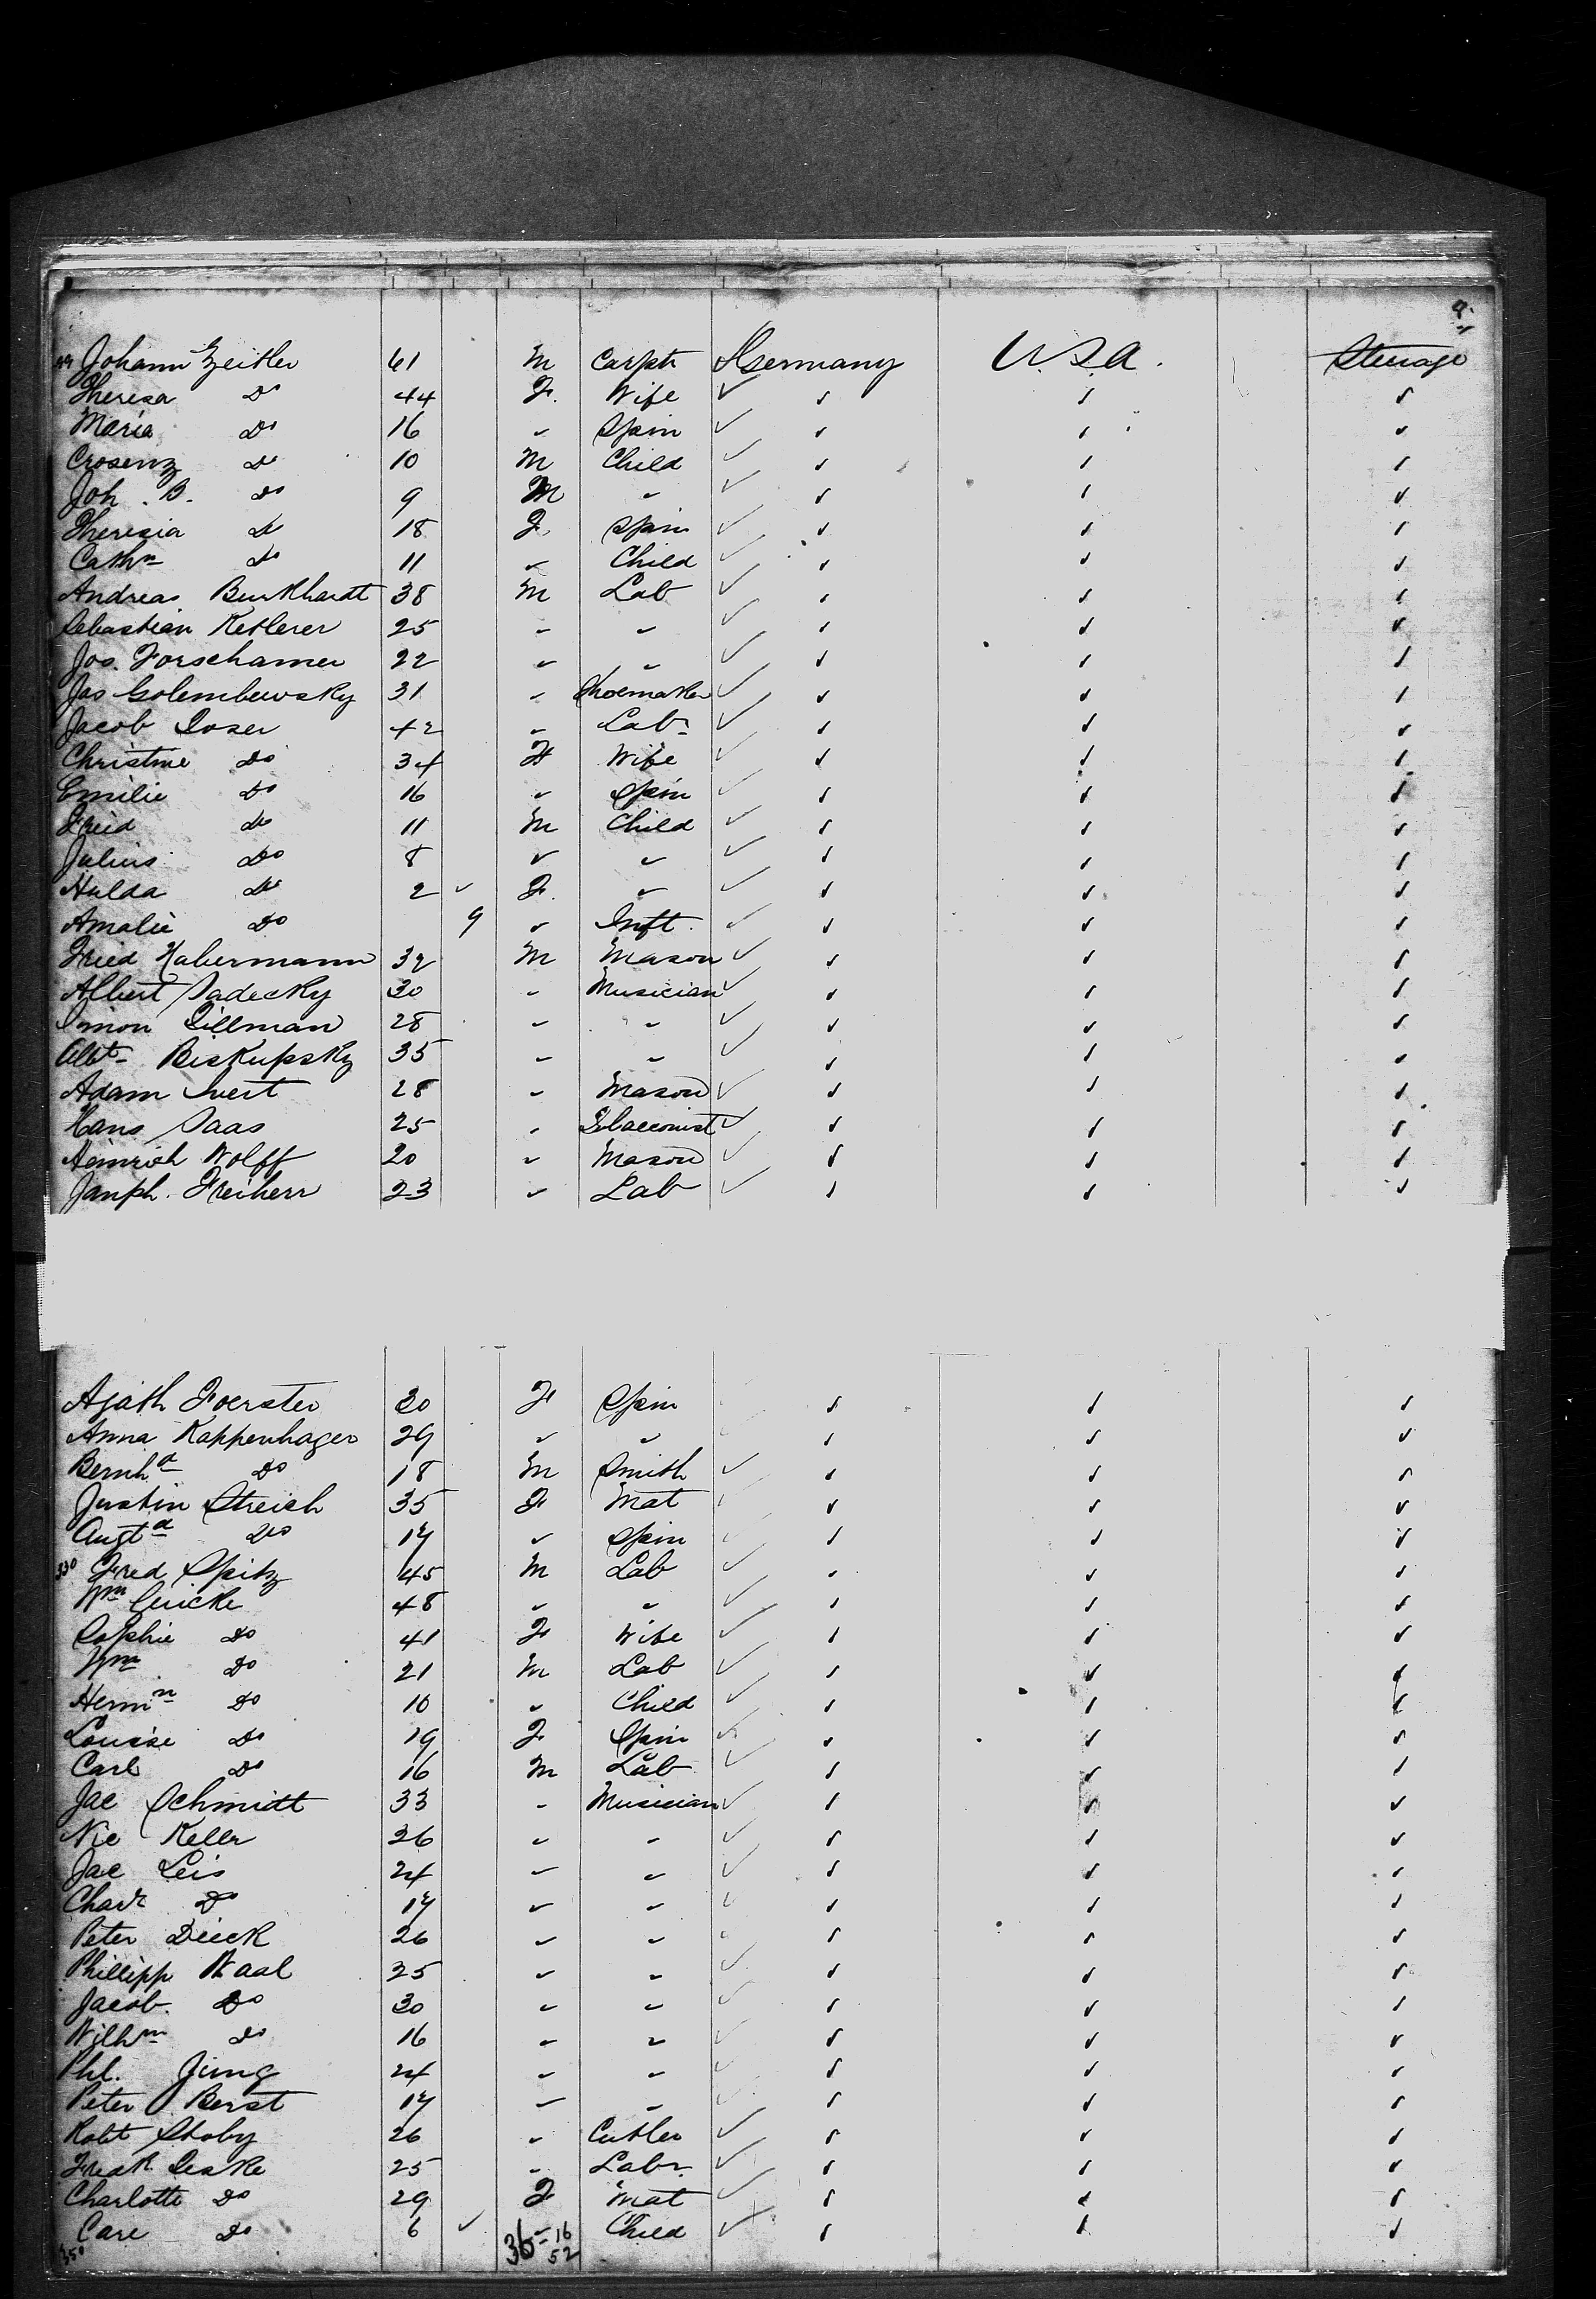 Johann Zeitler 61 M Carptr Germany U.S.A. Steerage
Theresa Do 44 F. Wife ✓
Maria Do 16 " Spin ✓
Crosenz Do 10 M Child ✓
Joh. B. Do 9 M " ✓
Theresia Do 18 F. Spin ✓
Cathn Do 11 " Child ✓
Andreas Burkhardt 38 M Lab ✓
Sebastian Ketterer 25 " " ✓
Jos. Forschamer 22 " " ✓
Jos Golembewsky 31 " Shoemaker ✓
Jacob Loser 42 " Labr ✓
Christine Do 34 F Wife ✓
Emilie Do 16 " Spin ✓
Fried Do 11 M Child ✓
Julius Do 8 " " ✓
Hulda Do 2 ✓ F. " ✓
Amalie Do 9 " Inft. ✓
Fried Habermann 32 M Mason ✓
Albert Sadecky 30 " Musician ✓
Simon Dillman 28 " " ✓
Albt Biskupsky 35 " " ✓
Adam 28 " Mason ✓
Hans Saas 25 " Tobacconist ✓
Heinrich Wolff 20 " Mason ✓
Freiherr 23 " Lab ✓
Agath Foerster 30 F Spin
Anna Kappenhager 29 " "
Bernhd Do 18 M Smith ✓
Justin Streich 35 F Mat
Augta Do 17 " Spin
330 Fred Spitz 45 M Lab ✓
Wm Guicke 48 " " ✓
Sophie Do 41 F Wife ✓
Wm Do 21 M Lab ✓
Hermn Do 10 " Child ✓
Louise Do 19 F Spin ✓
Carl Do 16 M Lab ✓
Jac Schmidt 33 " Musician ✓
Nic Keller 26 " " ✓
Jac Leis 24 " " ✓
Chas Do 17 " " ✓
Peter Dieck 26 " "
Phillipp Waal 25 " " ✓
Jacob Do 30 " " ✓
Wilhm Do 16 " " ✓
Phl. Jung 24 " " ✓
Peter Berst 17 " " ✓
Robt Stoby 26 " Cutler ✓
Fredk Leske 25 " Labr ✓
Charlotte Do 29 F Mat ✓
Carl Do 6 ✓ " Child ✓
350 36 16
52